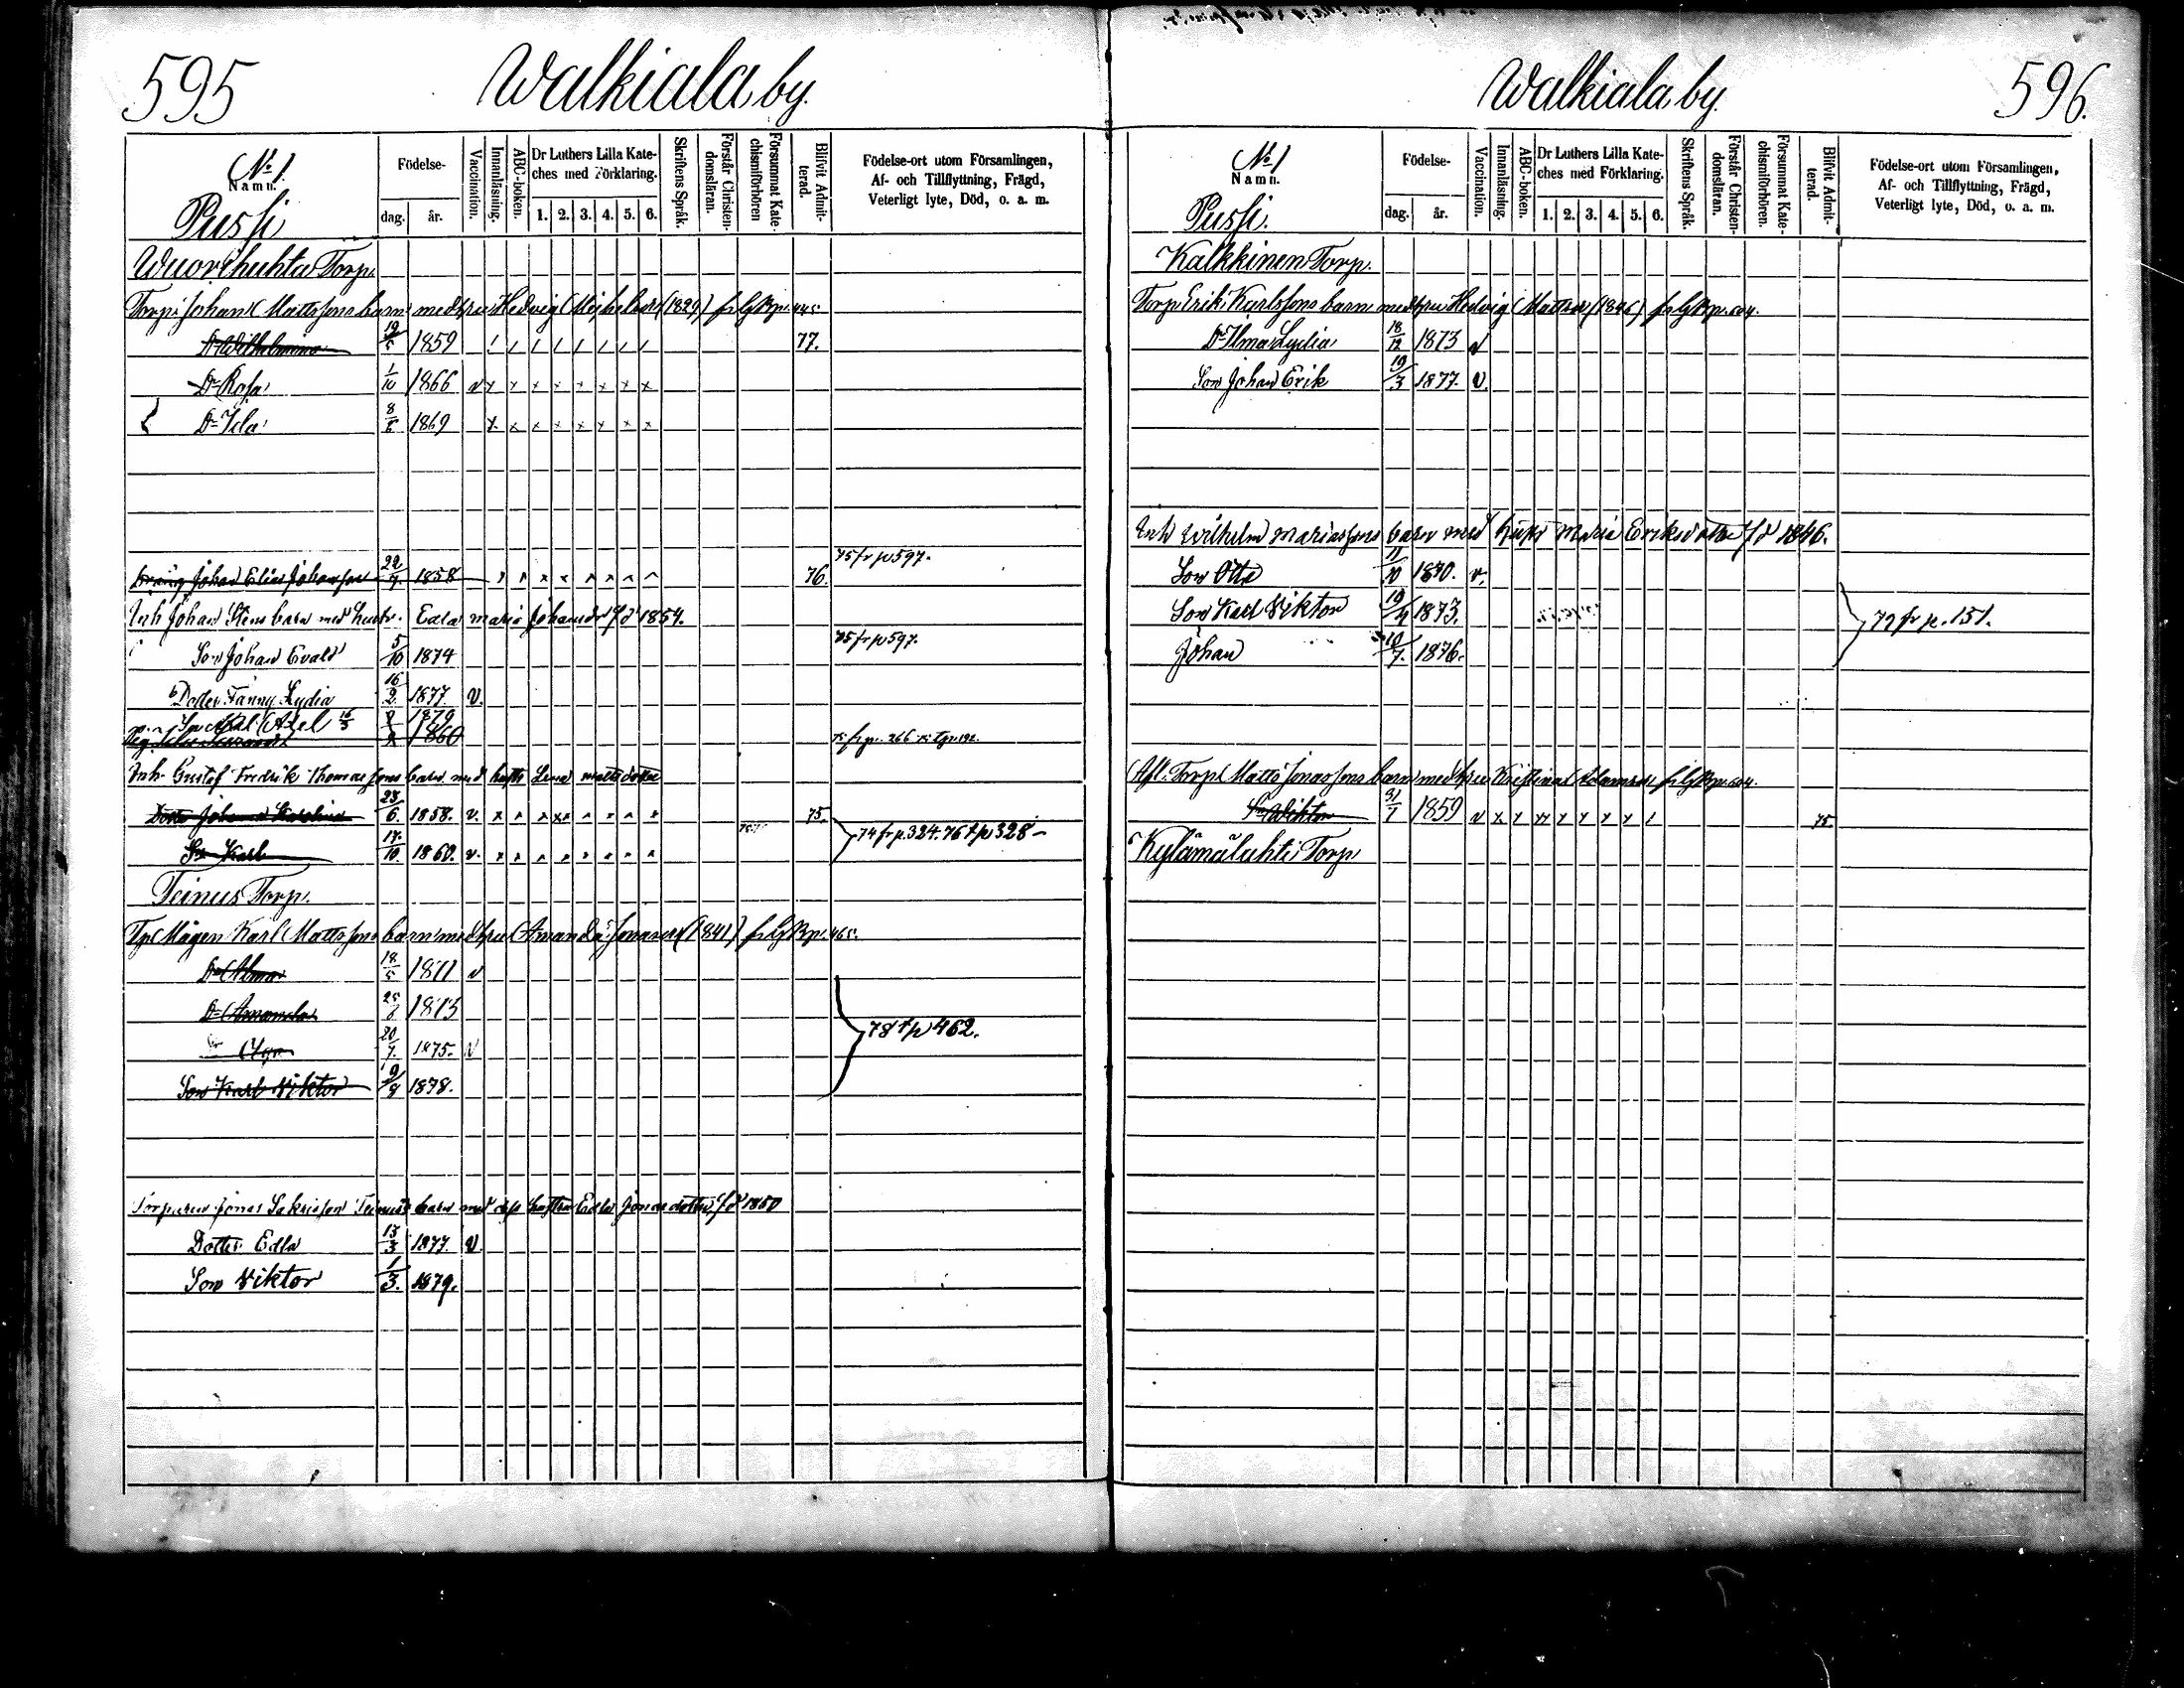 595
Walkiala by.
No 1.
Namn.
Pussi
Födelse-
dag.
år.
Vaccination.
Innanläsning.
ABC-boken.
Dr Luthers Lilla Kate-
ches med Förklaring.
1. 2. 3. 4. 5. 6.
Skriftens Språk.
Förstår Christen-
domsläran.
Försummat Kate-
chismiförhören
Blifvit Admit-
terad.
Födelse-ort utom Församlingen,
Af- och Tillflyttning, Frägd,
Veterligt lyte, Död, o. a. m.
Torp
Torp. Johan Mattssons barn med hru Hedvig (1829) fr lgBp. 445
Dr Wilhelmina 19/5 1859 77.
Dr Rosa 1/10 1866 v x x x x x x x x
Dr Ida 8/6 1869 x x x x x x x x
75 fr p 597.
Dräng Johan Elias Johansson 22/7 1858 76.
Inh Johan Stens barn med hustr. Edla Maria Johansdr fd 1854.
75 fr p 597.
Son Johan Evald 5/10 1874
Dotter Fanny Lydia 16/2 1877. v.
Axel 1879
1860
75 fr p. 266
Inh. Gustaf Fredrik Thomassons barn med hustr Lena Matts dotter
Dotter Johanna Karolina 23/6 1858. v. 75.
Sn Karl 17/10 1860. v.
74 fr p. 324. 76 t p 328
Teinus Torp.
Mågen Karl Mattssons barn med hru Amanda Jonasdr (1841) fr lgBp. 465.
Dr Alma 18/5 1871 v
Dr Amanda 1873
20/7. 1875. v
Son Karl Viktor 9/8 1878.
78 t p 462.
Torparen Jonas Sakrisson Teinus barn med dess hustru Edla Jonasdotter fd 1850
Dotter Edla 13/3 1877. v.
Son Viktor 1/3. 1879.
596.
Walkiala by.
No 1
Namn.
Pussi.
Födelse-
dag.
år.
Vaccination.
Innanläsning.
ABC-boken.
Dr Luthers Lilla Kate-
ches med Förklaring.
1. 2. 3. 4. 5. 6.
Skriftens Språk.
Förstår Christen-
domsläran.
Försummat Kate-
chismiförhören.
Blifvit Admit-
terad.
Födelse-ort utom Församlingen,
Af- och Tillflyttning, Frägd,
Veterligt lyte, Död, o. a. m.
Kalkkinen Torp.
Torp Erik Karlssons barn med hru Hedvig Mattsdr (1846) fr lgBp. 604.
Dr Ilma Lydia 18/12 1873 v
Son Johan Erik 19/3 1877. v.
Inh Wilhelm Mariassons barn med hustr Maria Eriksdotter fd 1846.
Son Otto 1870. v.
Son Karl Viktor 19/4 1873.
Johan 1876.
79 fr p. 151.
Afl. Torp Matts Jonassons barn med hru Kristina Adamsdr fr lgBp. 604.
Sn Wiktor 1859 v 75
Kylämälahti Torp